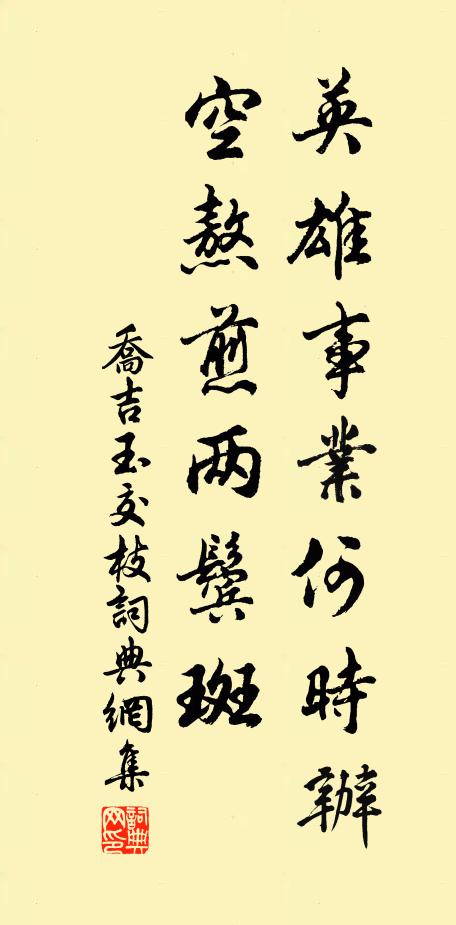 英雄事業何時辦
空熬煎两鬢斑
喬吉玉交枝詞典網集
詞典網印